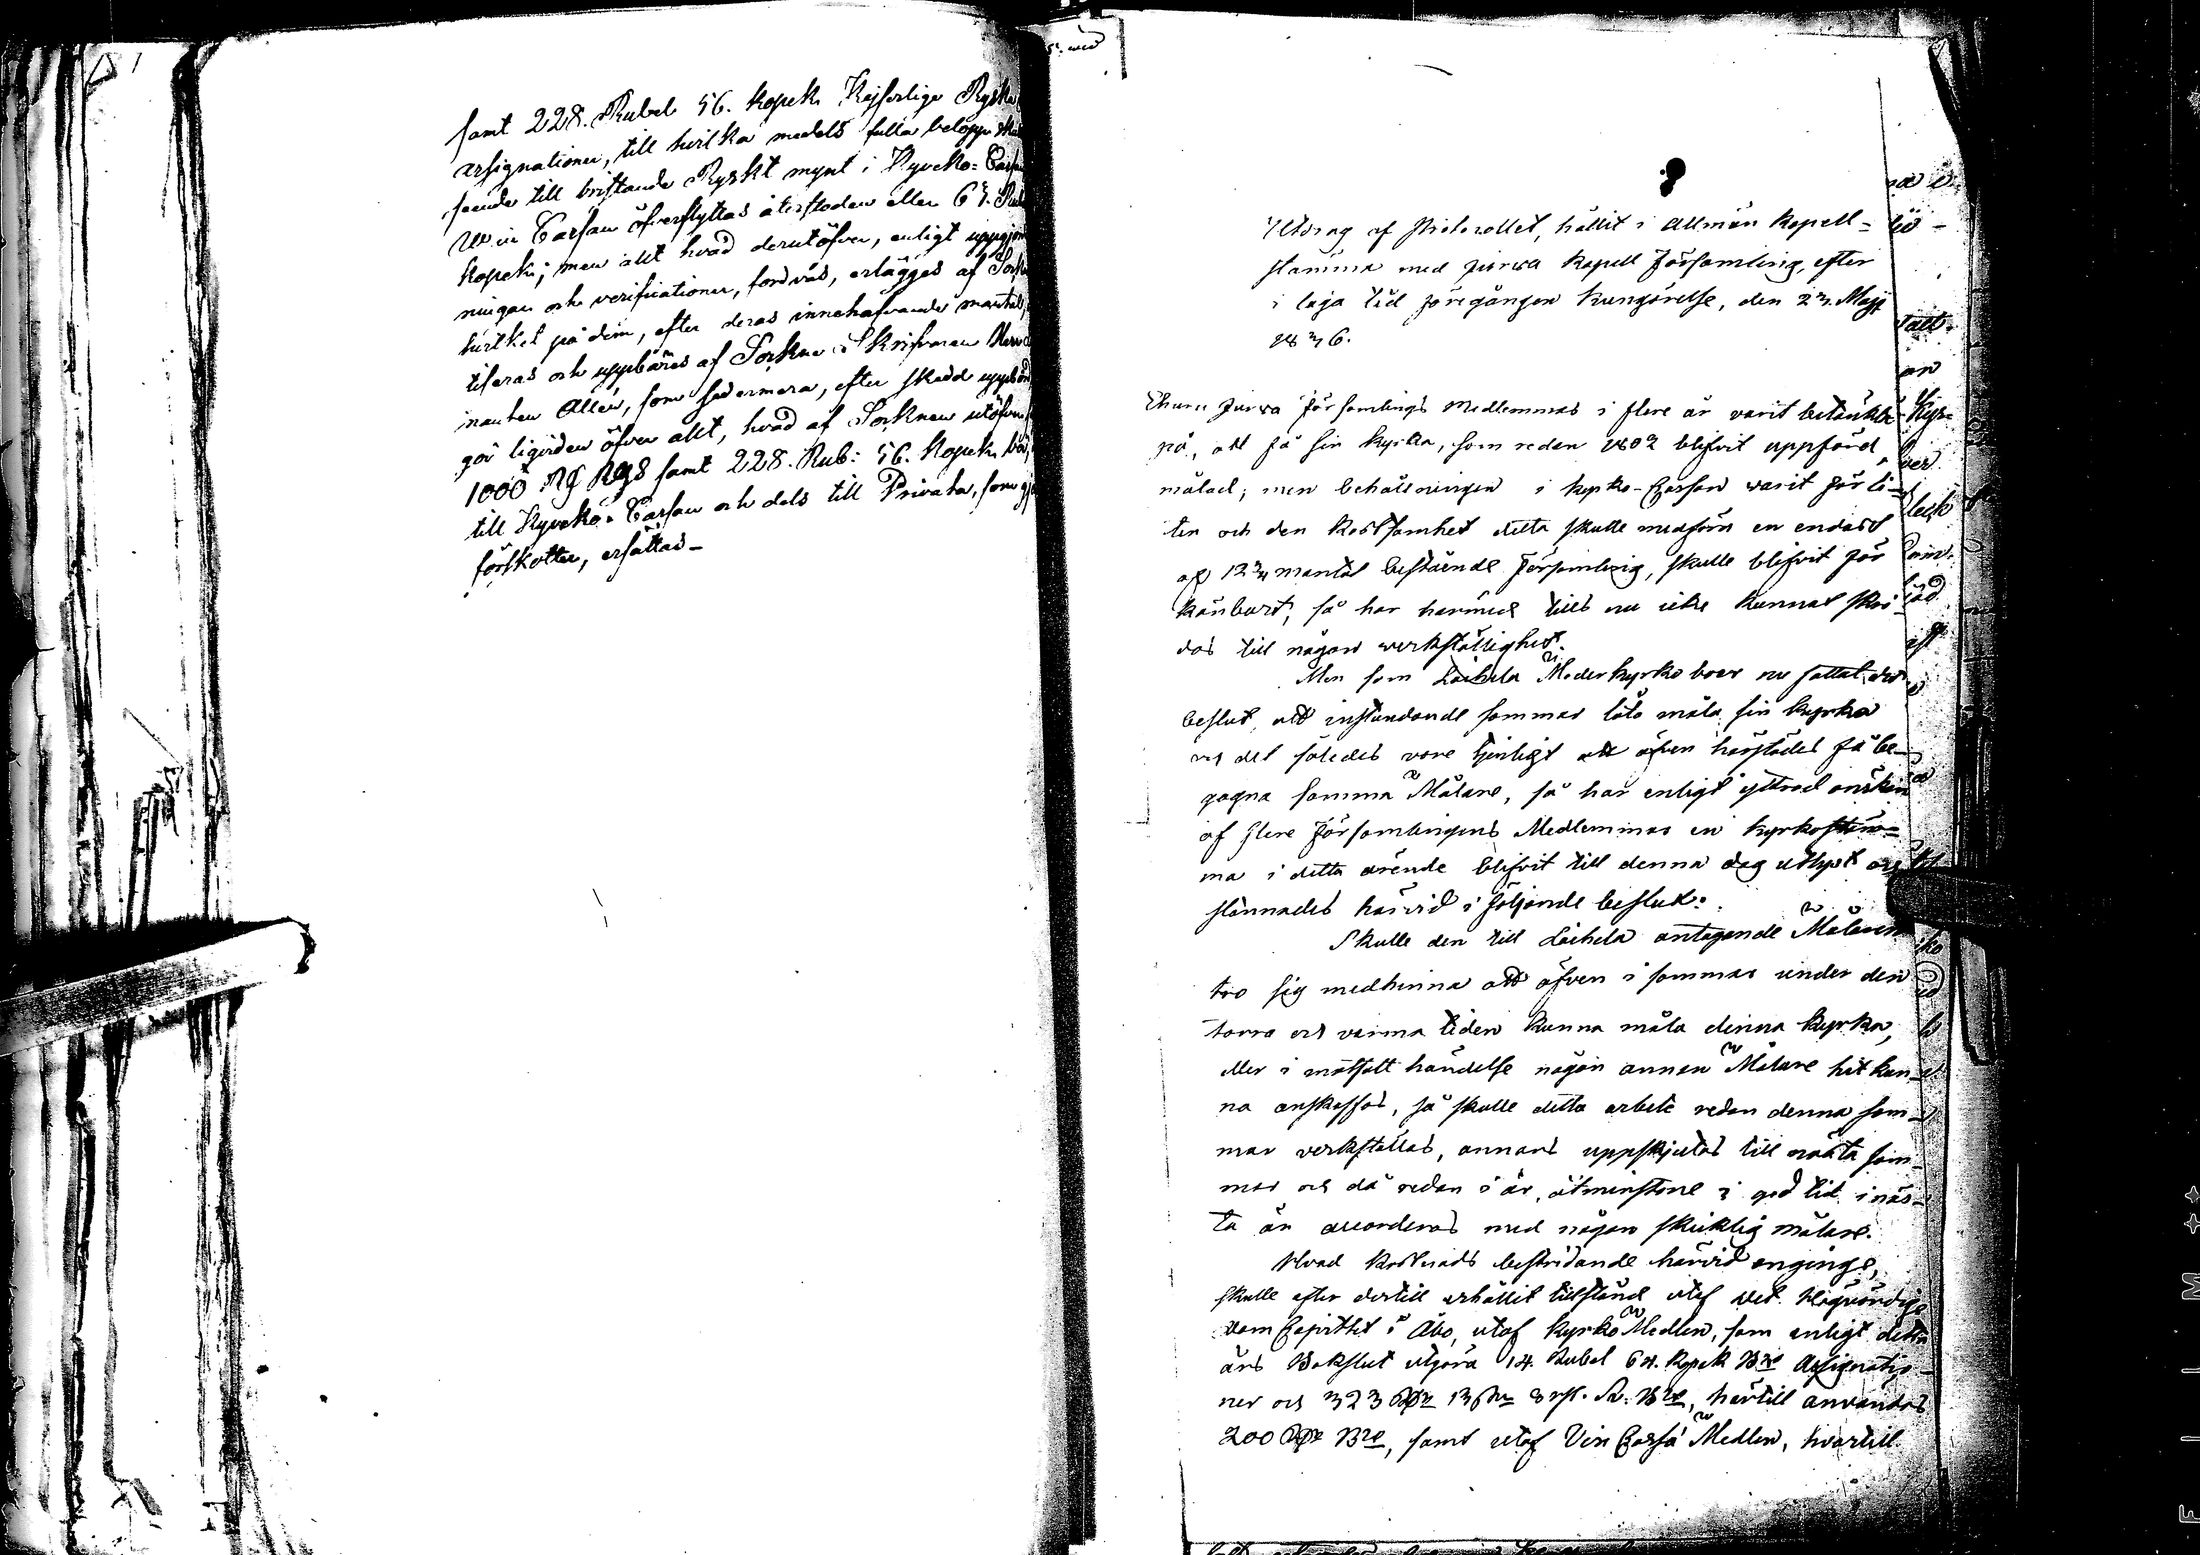 samt 228. Rubel 56. Kopek Kejserliga Ryska
assignationer, till hvilka medels fulla belopp skul
seende till bristande Ryskt mynt i Kyrcko-Cassan
Win Cassan öfverflyttas återstoden eller 63. Rub
Kopek; men allt hvad derutöfver, enligt uppgjor
ningar och verificationer, fordras, erlägges af Sock
hvilket på dem, efter deras innehafvande mantal,
tiseras och uppbäres af Sockne-Skrifvaren Herr
inanten Allén, som sedermera, efter skedd uppbörd
gör liqviden öfver allt, hvad af Socknen utöfver
1000 RG Rgs samt 228. Rub: 56. Kopek, bör,
till Kyrcko-Cassan och dels till Privata, som gj
förskotter, ersättas_
Utdrag af Protocollet, hållit i Allmän Kapell=
stämma med Jurva Kapell Församling, efter
i laga tid föregången kungörelse, den 23. Maji
1836.
Ehuru Jurva Församlings Medlemmar i flere år varit betänkte
på, att få sin kyrka, som redan 1802 blifvit uppförd,
målad; men behållningen i kyrko-Cassan varit för li-
ten och den kostsamhet detta skulle medföra en endast
af 12 3/4 mantal bestående Församling, skulle blifvit för
känbart, så har härmed tills nu icke kunnat skri-
das till någon verkställighet.
Men som Laihela Moderkyrko boer nu fattat det
beslut, att instundande sommar låta måla sin kyrka
och det således vore tjenligt att äfven härstädes få be-
gagna samma Målare, så har enligt yttrad önskan
af flere Församlingens Medlemmar en kyrkostäm=
ma i detta ärende blifvit till denna dag utlyst och
stannades härvid i följande beslut:
Skulle den till Laihela antagande Målaren
tro sig medhinna att äfven i sommar under den
torra och varma tiden kunna måla denna kyrka,
eller i motsatt händelse någon annan Målare hit kun-
na anskaffas, så skulle detta arbete redan denna som-
mar verkställas, annars uppskjutas till nästa som-
mar och då redan i år, åtminstone i god tid i näs-
ta år accorderas med någon skicklig målare.
Hvad kostnads bestridande härvid anginge,
skulle efter dertill erhållit tillstånd utaf det Högvördiga
Dom Capittlet i Åbo, utaf kyrko Medlen, som enligt detta
års Bokslut utgöra 14. Rubel 64. Kopek Bco Assignatio-
ner och 323 Rdr 13 sk 8 rst. Sv. Bco, härtill användas
200 Rdr Bco, samt utaf Vin Cassa Medlen, hvartill